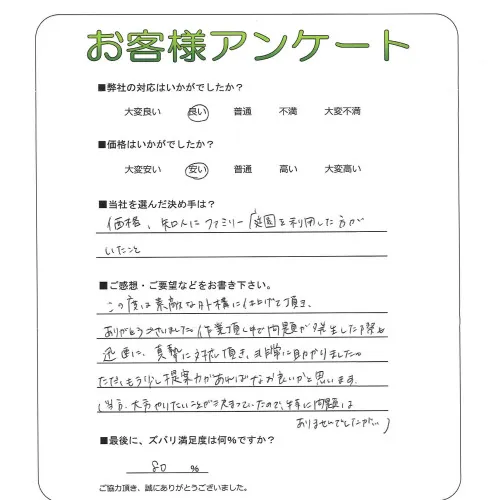 お客様アンケート
■弊社の対応はいかがでしたか？
大変良い 良い 普通 不満 大変不満
■価格はいかがでしたか？
大変安い 安い 普通 高い 大変高い
■当社を選んだ決め手は？
価格、知人にファミリー庭園を利用した方が
いたこと
■ご感想・ご要望などをお書き下さい。
この度は素敵な外構に仕上げて頂き、
ありがとうございました。作業頂く中で問題が発生した際も
迅速に、真摯に対応頂き、非常に助かりました。
ただ、もう少し提案力があればなお良いかと思います。
(当方、大方やりたいことが決まっていたので、特に問題は
ありませんでしたが…)
■最後に、ズバリ満足度は何%ですか？
80 %
ご協力頂き、誠にありがとうございました。